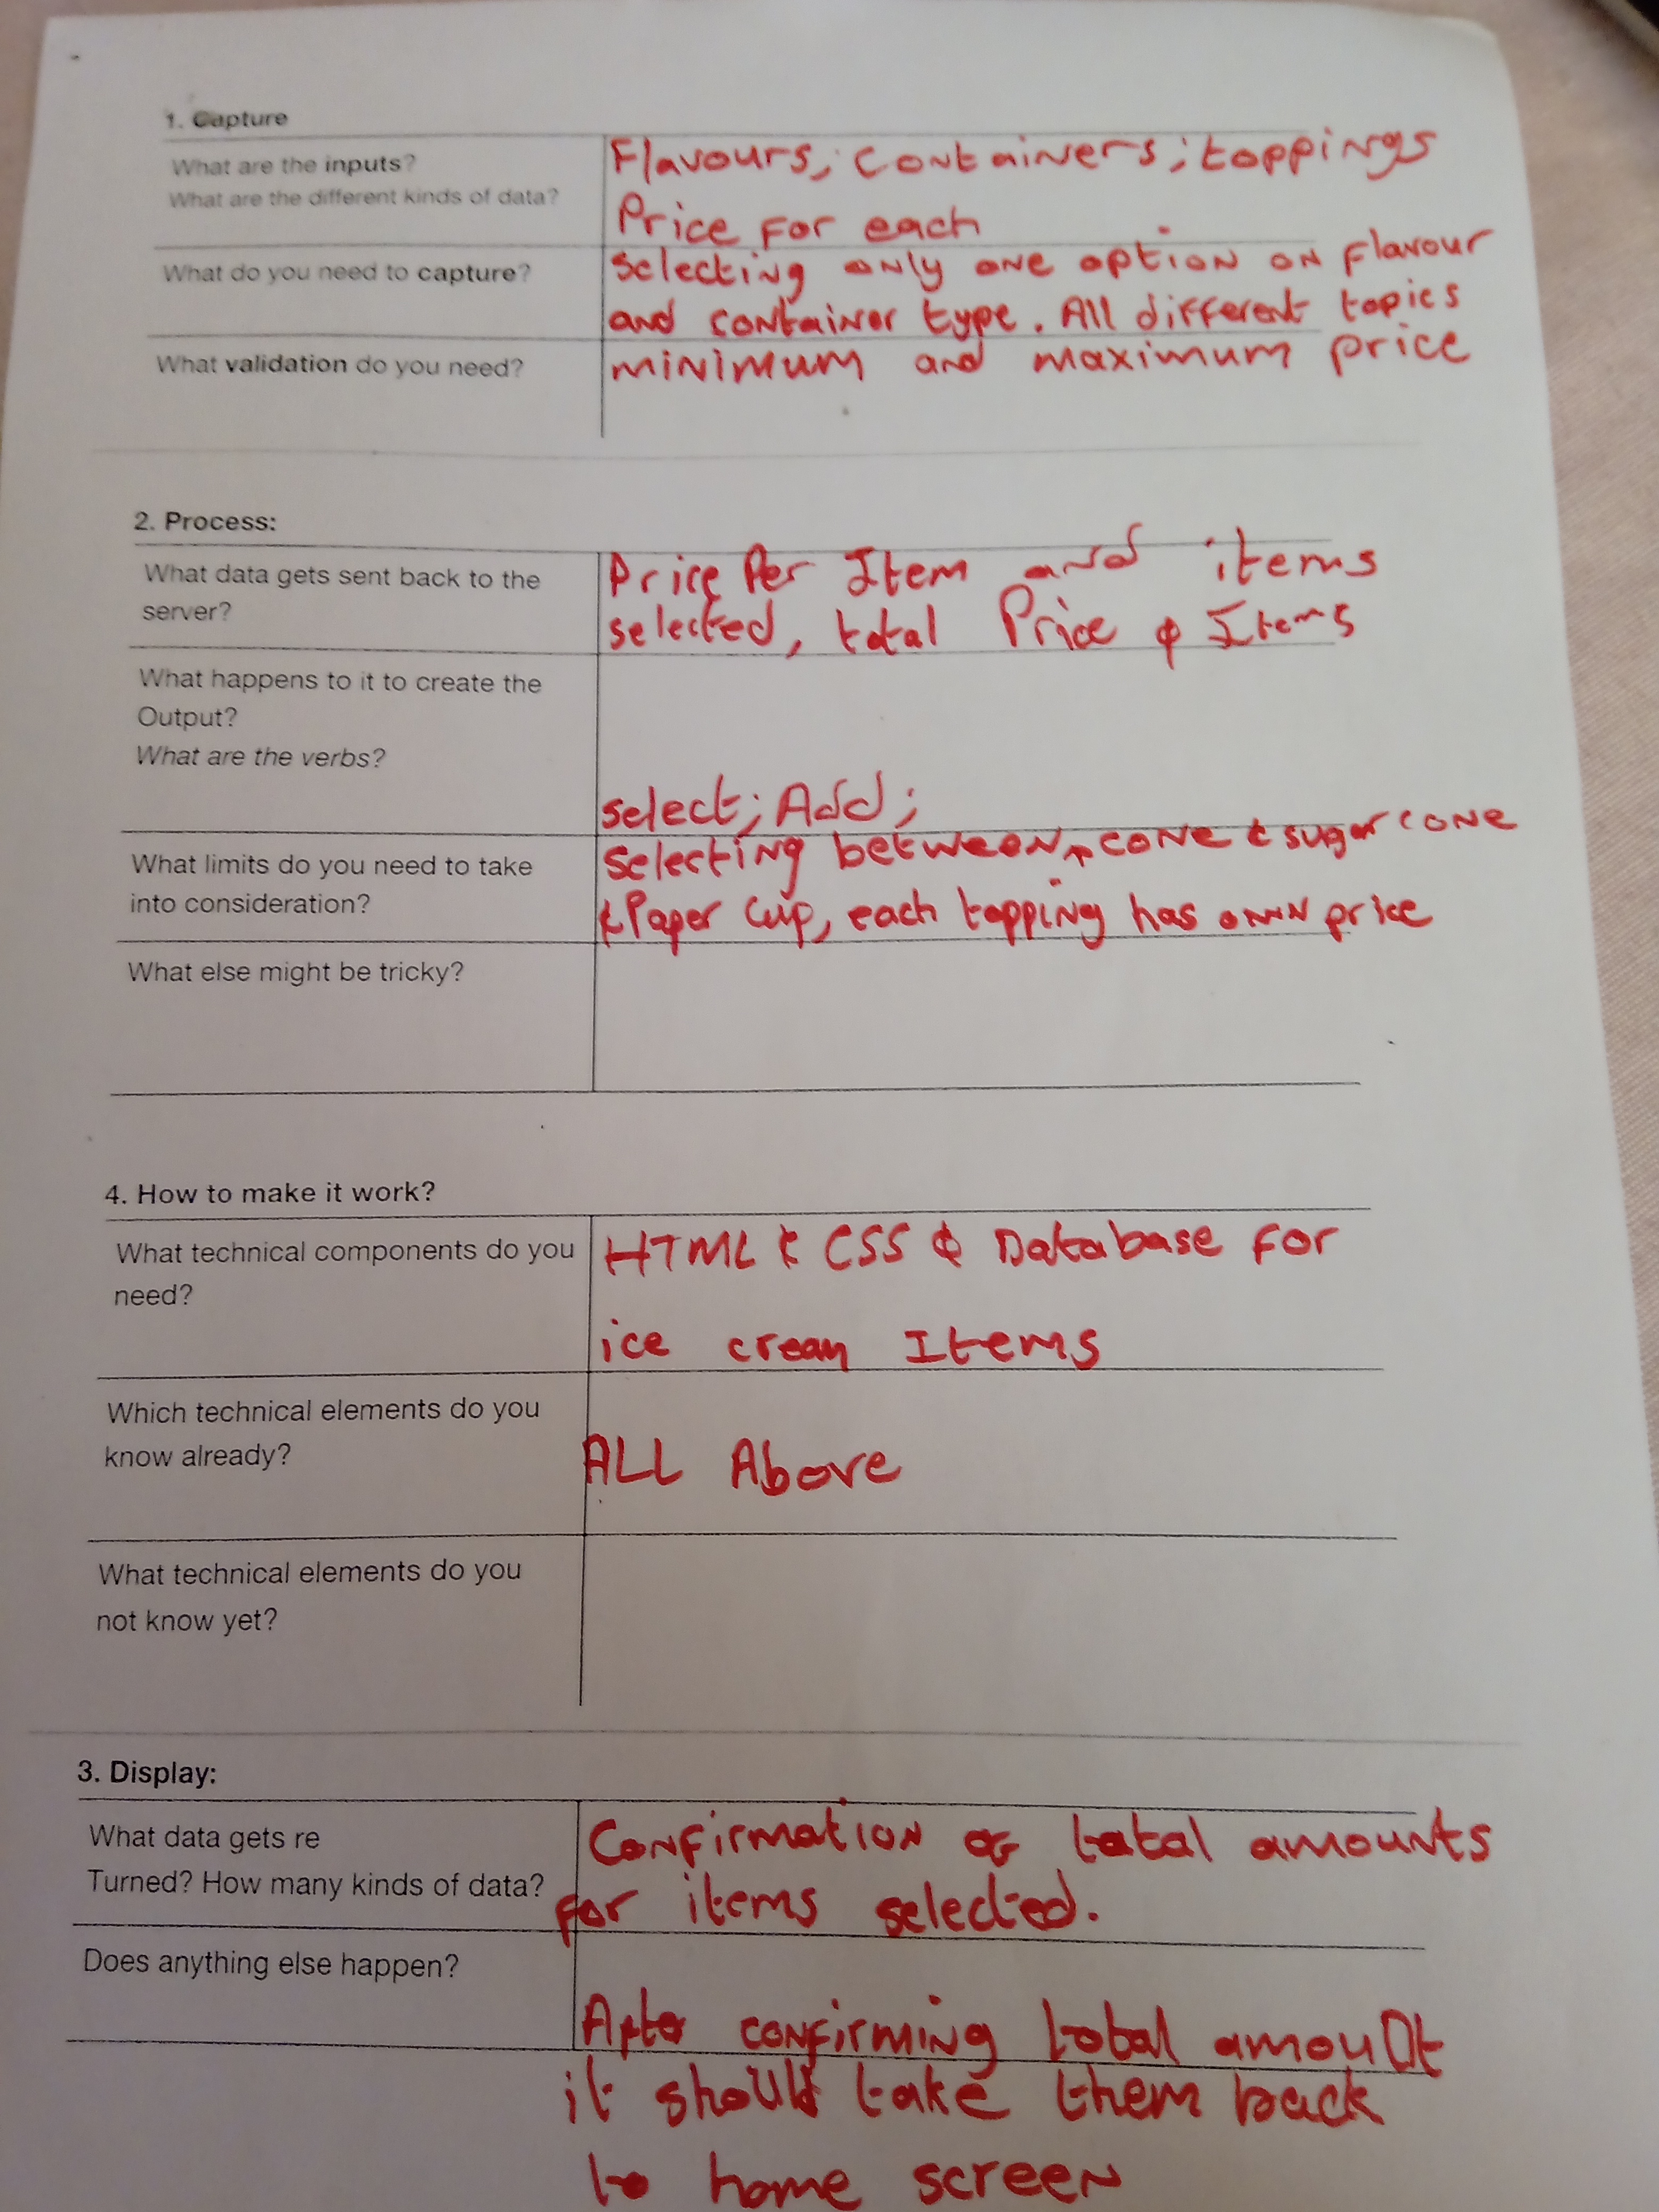 1. Capture
What are the inputs?
What are the different kinds of data?
Flavours; Containers; toppings
Price For each
What do you need to capture?
selecting only one option on flavour
and container type. All different topics
What validation do you need?
minimum and maximum price
2. Process:
What data gets sent back to the
server?
Price Per Item and items
selected, total Price & Items
What happens to it to create the
Output?
What are the verbs?
select; Add;
What limits do you need to take
into consideration?
Selecting between cone & sugar cone
& Paper Cup, each topping has own price
What else might be tricky?
4. How to make it work?
What technical components do you
need?
HTML & CSS & Database for
ice cream Items
Which technical elements do you
know already?
ALL Above
What technical elements do you
not know yet?
3. Display:
What data gets re
Turned? How many kinds of data?
Confirmation of total amounts
for items selected.
Does anything else happen?
After confirming total amount
it should take them back
to home screen